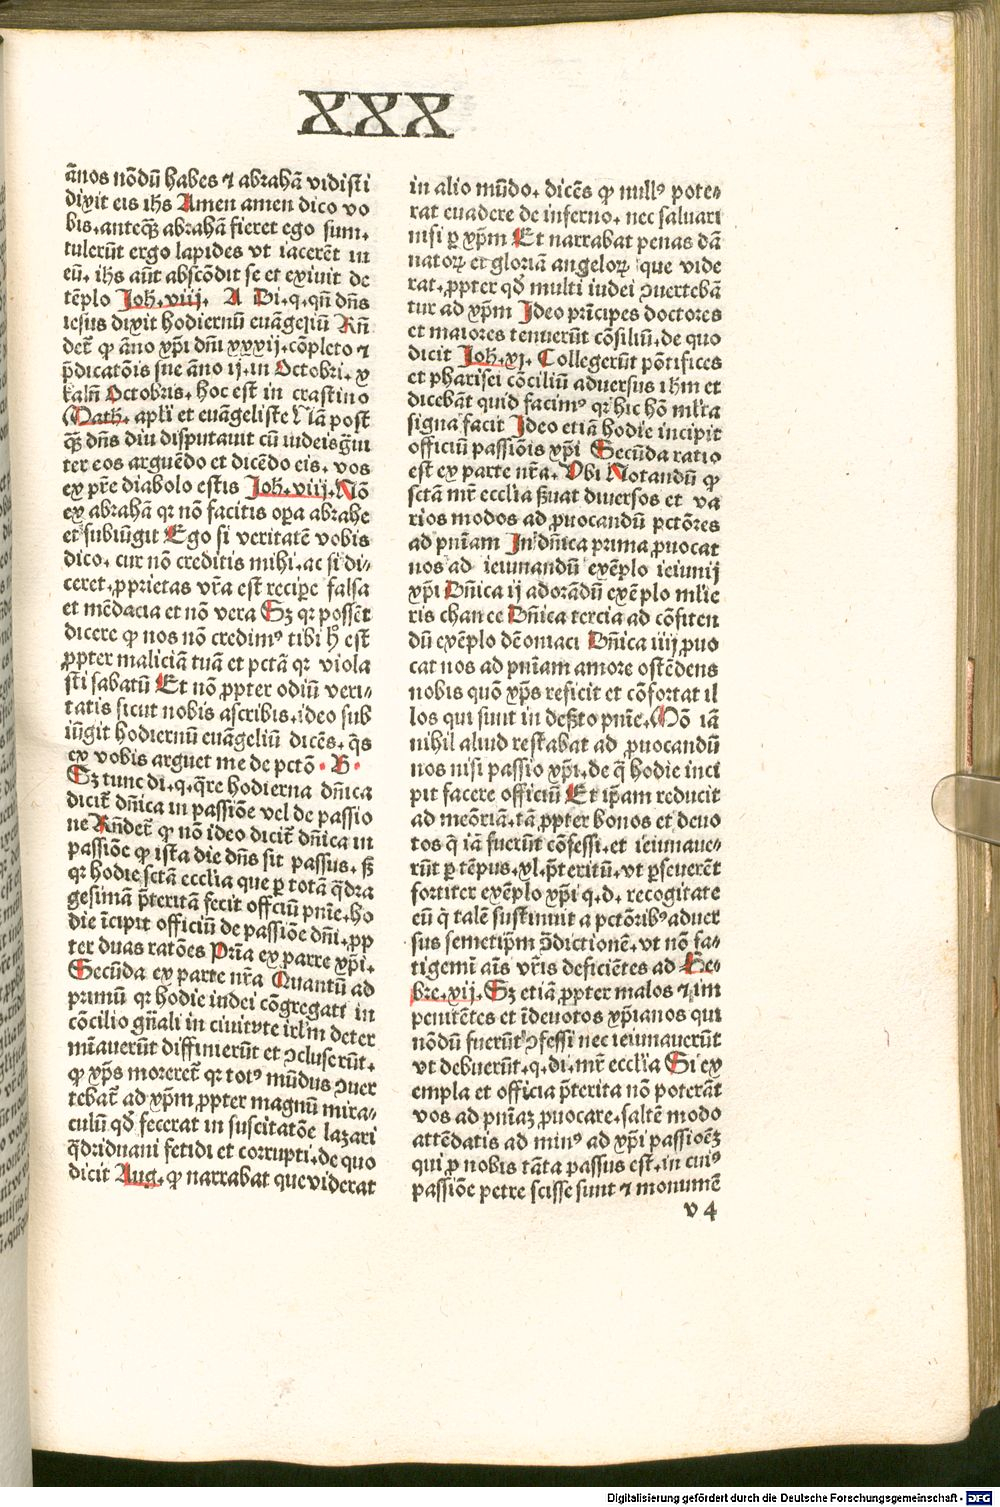 XXX
ānos nōdū habes ⁊ abrahā vidisti
dixit eis ihs Amen amen dico vo
bis.anteqꝫ abrahā fieret ego sum.
tulerūt ergo lapides vt iacerēt in
eū. ihs aūt abscōdit se et exiuit de
tēplo Joh.viij. A Di.q.qn̄ dn̄s
iesus dixit hodiernū euāgeliū Rn̄
det̄ ꝙ āno xp̄i dn̄i xxxij.cōpleto ⁊
p̄dicatōis sue āno ij.in Octobri.x
kaln̄ Octobris. hoc est in crastino
Math. apl̄i et euāgeliste Nā post
qꝫ dn̄s diu disputauit cū iudeis g̃ui
ter eos arguēdo et dicēdo eis. vos
ex pr̄e diabolo estis Joh.viij. Nō
ex abrahā qꝛ nō facitis oꝑa abrahe
et subiūgit Ego si veritatē vobis
dico. cur nō creditis mihi.ac si di-
ceret.ꝓprietas vr̄a est reciꝑe falsa
et mēdacia et nō vera Sꝫ qꝛ possēt
dicere ꝙ nos nō credimꝰ tibi hͦ est
ꝓpter maliciā tuā et pctā qꝛ viola
sti sabatū Et nō ꝓpter odiū veri-
tatis sicut nobis ascribis.ideo sub
iūgit hodiernū euāgeliū dicēs.q̄s
ex vobis arguet me de pctō. B.
Sꝫ tunc di.q.q̄re hodierna dn̄ica
dicit̄ dn̄ica in passiōe vel de passio
ne Rn̄det̄ ꝙ nō ideo dicit̄ dn̄ica in
passiōe ꝙ ista die dn̄s sit passus. sꝫ
qꝛ hodie sctā ecclīa que ꝑ totā q̄dra
gesimā p̄teritā fecit offciū pn̄ie.ho
die īcipit officiū de passiōe dn̄i.ꝓp
ter duas ratōes Pr̄ia ex parre xp̄i.
Secūda ex parte nr̄a Quantū ad
primū qꝛ hodie iudei cōgregati in
cōcilio gn̄ali in ciuitvte irl̄m deter
mīauerūt diffinierūt et ɔcluserūt.
ꝙ xp̄s moreret̄ qꝛ totꝰ mūdus ɔuer
tebat̄ ad xp̄m ꝓpter magnū mira-
culū qď fecerat in suscitatōe lazari
q̄driduani fetidi et corrupti.de quo
dicit Aug. ꝙ narrabat que viderat
in alio mūdo. dicēs ꝙ nullꝰ pote-
rat euadere de inferno. nec saluari
nisi ꝑ xp̄m Et narrabat penas dā
natoꝝ et gloriā angeloꝝ que vide
rat.ꝓpter qď multi iudei ɔuertebā
tur ad xp̄m Ideo prīcipes doctores
et maiores tenuerūt cōsiliū.de quo
dicit Joh.xj. Collegerūt pōtifices
et pharisei cōciliū aduersus ihm et
dicebāt quid facimꝰ qꝛ hic hō ml̄ta
signa facit Ideo etiā hodie incipit
officiū passiōis xp̄i Secūda ratio
est ex parte nr̄a. Vbi Notandū ꝙ
sctā mr̄ ecclīa ẜuat diuersos et va
rios modos ad ꝓuocandū pctōres
ad pn̄iam In dn̄ica prima ꝓuocat
nos ad ieiunandū exēplo ieiunij
xp̄i Dn̄ica ij adorādū exēplo ml̄ie
ris chan ee Dn̄ica tercia ad cōfiten
dū exēplo dēoniaci Dn̄ica iiij ꝓuo
cat nos ad pn̄iam amore ostēdens
nobis quō xp̄s reficit et cōfortat il
los qui sunt in deẜto pn̄ie. Mō iā
nihil aliud restabat ad ꝓuocandū
nos nisi passio xp̄i.de q̄ hodie inci
pit facere officiū Et ip̄am reducit
ad meōriā.tā ꝓpter bonos et deuo
tos q̄ iā fuerūt cōfessi.et ieiunaue-
rūt ꝑ tēpus.xl.p̄teritū.vt ꝑseuerēt
fortiter exēplo xp̄i q.d. recogitate
eū q̄ talē sustinuit a pctōribꝰ aduer
sus semetip̄m ɔ̄dictionē.vt nō fa-
tigemī aīs vr̄is deficiētes ad Heb-
bre.xij. Sꝫ etiā ꝓpter malos ⁊ im
penitētes et īdeuotos xp̄ianos qui
nōdū fuerūt ɔfessi nec ieiunauerūt
vt debuerūt.q.di.mr̄ ecclīa Si ex
empla et officia p̄terita nō poterāt
vos ad pn̄iaꝫ ꝓuocare.saltē modo
attēdatis ad minꝰ ad xp̄i passioēꝫ
qui ꝓ nobis tāta passus est.in cuiꝰ
passiōe petre scisse sunt ⁊ monumē
v 4
Digitalisierung gefördert durch die Deutsche Forschungsgemeinschaft - DFG